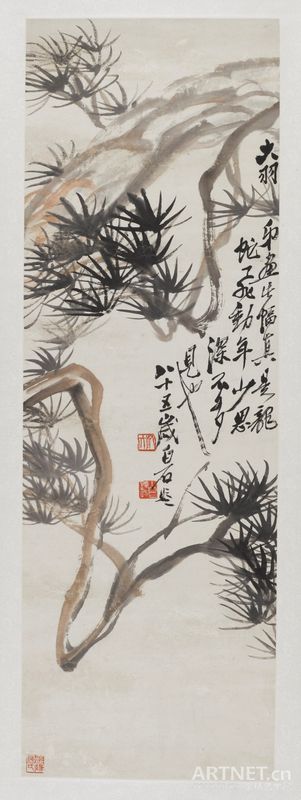 大羽
弟画此幅真是龍
蛇飛動年少思
深不多
見也
八十五歲白石題
ARTNET.cn